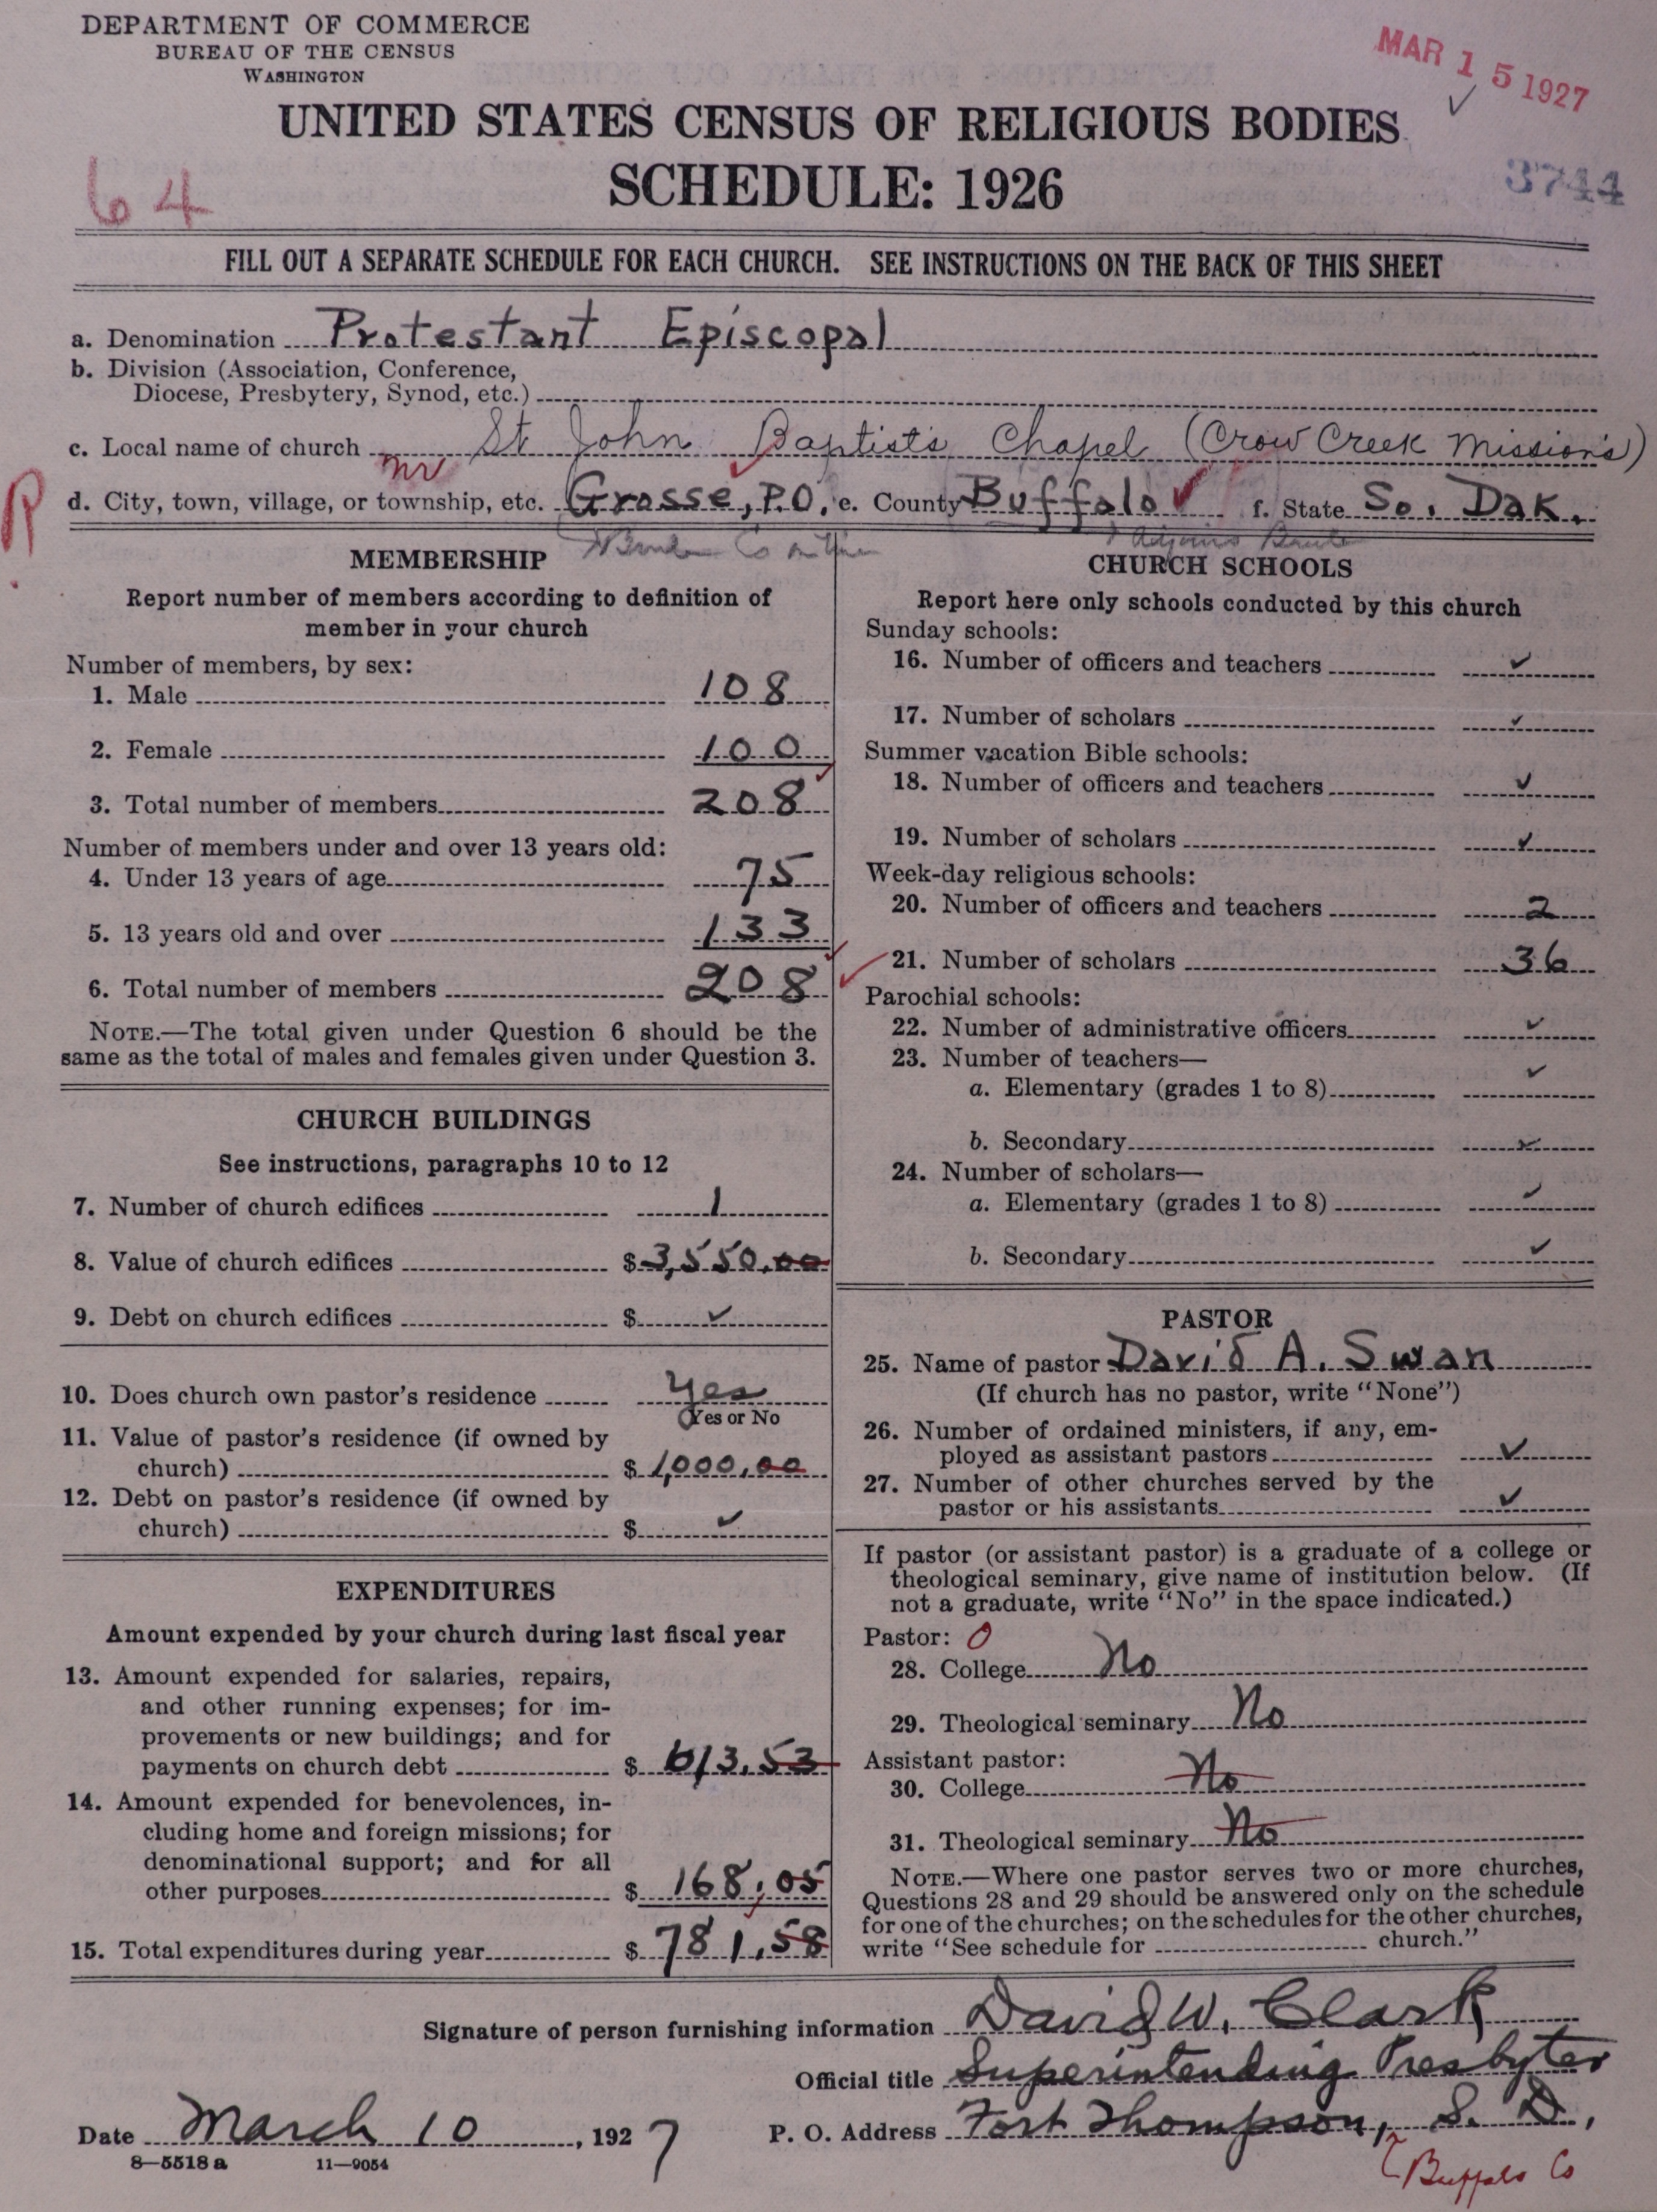 DEPARTMENT OF COMMERCE
BUREAU OF THE CENSUS
WASHINGTON
MAR 15 1927
UNITED STATES CENSUS OF RELIGIOUS BODIES
SCHEDULE: 1926
64
3744
FILL OUT A SEPARATE SCHEDULE FOR EACH CHURCH. SEE INSTRUCTIONS ON THE BACK OF THIS SHEET
a. Denomination Protestant Episcopal
b. Division (Association, Conference,
Diocese, Presbytery, Synod, etc.)
c. Local name of church St John Baptist's Chapel (Crow Creek Missions)
R
d. City, town, village, or township, etc. Grosse, P.O. e. County Buffalo f. State So. Dak.
MEMBERSHIP
Report number of members according to definition of
member in your church
Number of members, by sex:
1. Male 108
2. Female 100
3. Total number of members 208
Number of members under and over 13 years old:
4. Under 13 years of age 75
5. 13 years old and over 133
6. Total number of members 208
NOTE.—The total given under Question 6 should be the
same as the total of males and females given under Question 3.
CHURCH BUILDINGS
See instructions, paragraphs 10 to 12
7. Number of church edifices 1
8. Value of church edifices $3,550.00
9. Debt on church edifices $ ✓
10. Does church own pastor's residence Yes
Yes or No
11. Value of pastor's residence (if owned by
church) $1,000.00
12. Debt on pastor's residence (if owned by
church) $ ✓
EXPENDITURES
Amount expended by your church during last fiscal year
13. Amount expended for salaries, repairs,
and other running expenses; for im-
provements or new buildings; and for
payments on church debt $ 613.53
14. Amount expended for benevolences, in-
cluding home and foreign missions; for
denominational support; and for all
other purposes $ 168.05
15. Total expenditures during year $ 781.58
Adjoins Brule
CHURCH SCHOOLS
Report here only schools conducted by this church
Sunday schools:
16. Number of officers and teachers ✓
17. Number of scholars ✓
Summer vacation Bible schools:
18. Number of officers and teachers ✓
19. Number of scholars ✓
Week-day religious schools:
20. Number of officers and teachers 2
21. Number of scholars 36
Parochial schools:
22. Number of administrative officers ✓
23. Number of teachers—
a. Elementary (grades 1 to 8) ✓
b. Secondary ✓
24. Number of scholars—
a. Elementary (grades 1 to 8) ✓
b. Secondary ✓
PASTOR
25. Name of pastor David A. Swan
(If church has no pastor, write "None")
26. Number of ordained ministers, if any, em-
ployed as assistant pastors ✓
27. Number of other churches served by the
pastor or his assistants ✓
If pastor (or assistant pastor) is a graduate of a college or
theological seminary, give name of institution below. (If
not a graduate, write "No" in the space indicated.)
Pastor: 0
28. College No
29. Theological seminary No
Assistant pastor:
30. College No
31. Theological seminary No
NOTE.—Where one pastor serves two or more churches,
Questions 28 and 29 should be answered only on the schedule
for one of the churches; on the schedules for the other churches,
write "See schedule for church."
Signature of person furnishing information David W. Clark
Official title Superintending Presbyter
Date March 10, 1927 P. O. Address Fort Thompson, S. D.,
8—5518 a 11—9054
Buffalo Co